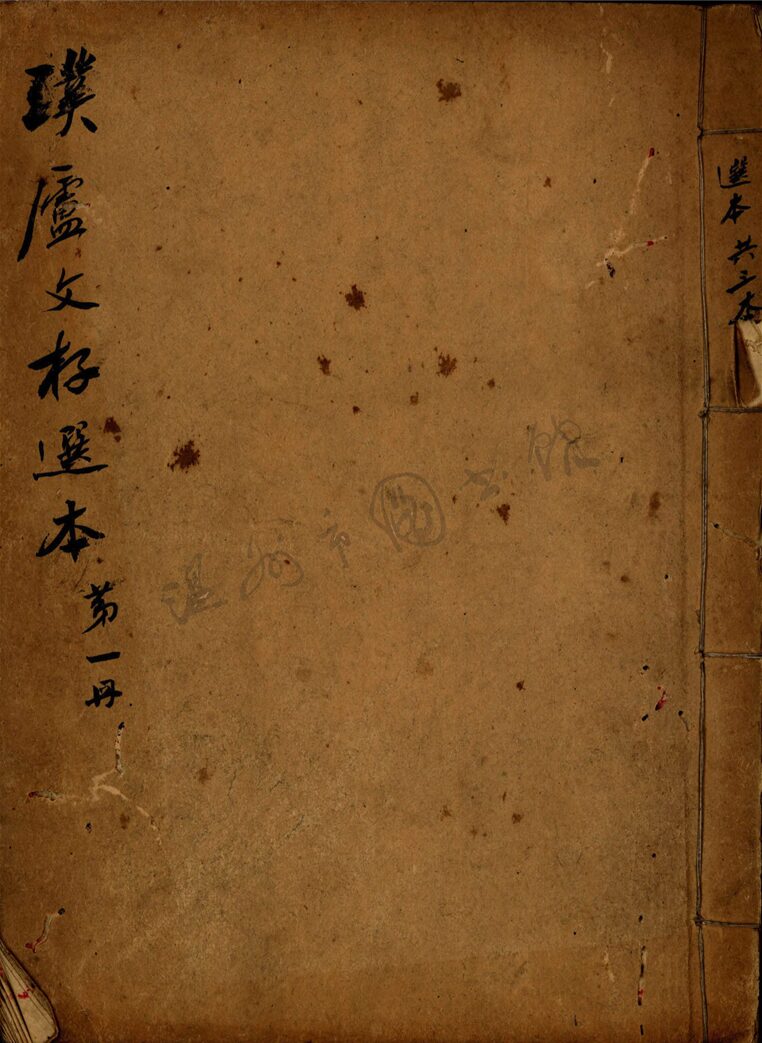 選本共三本
璞廬文存選本 第一冊
温州市圖书馆